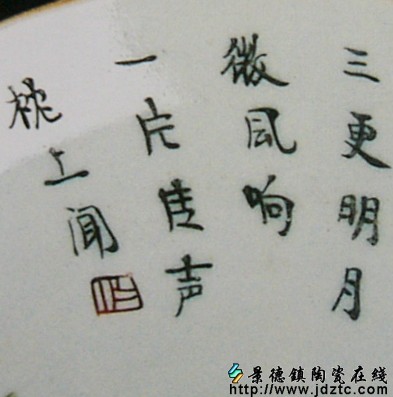 三更明月
微风响
一片佳声
枕上闻
景德鎮陶瓷在綫
http://www.jdztc.com